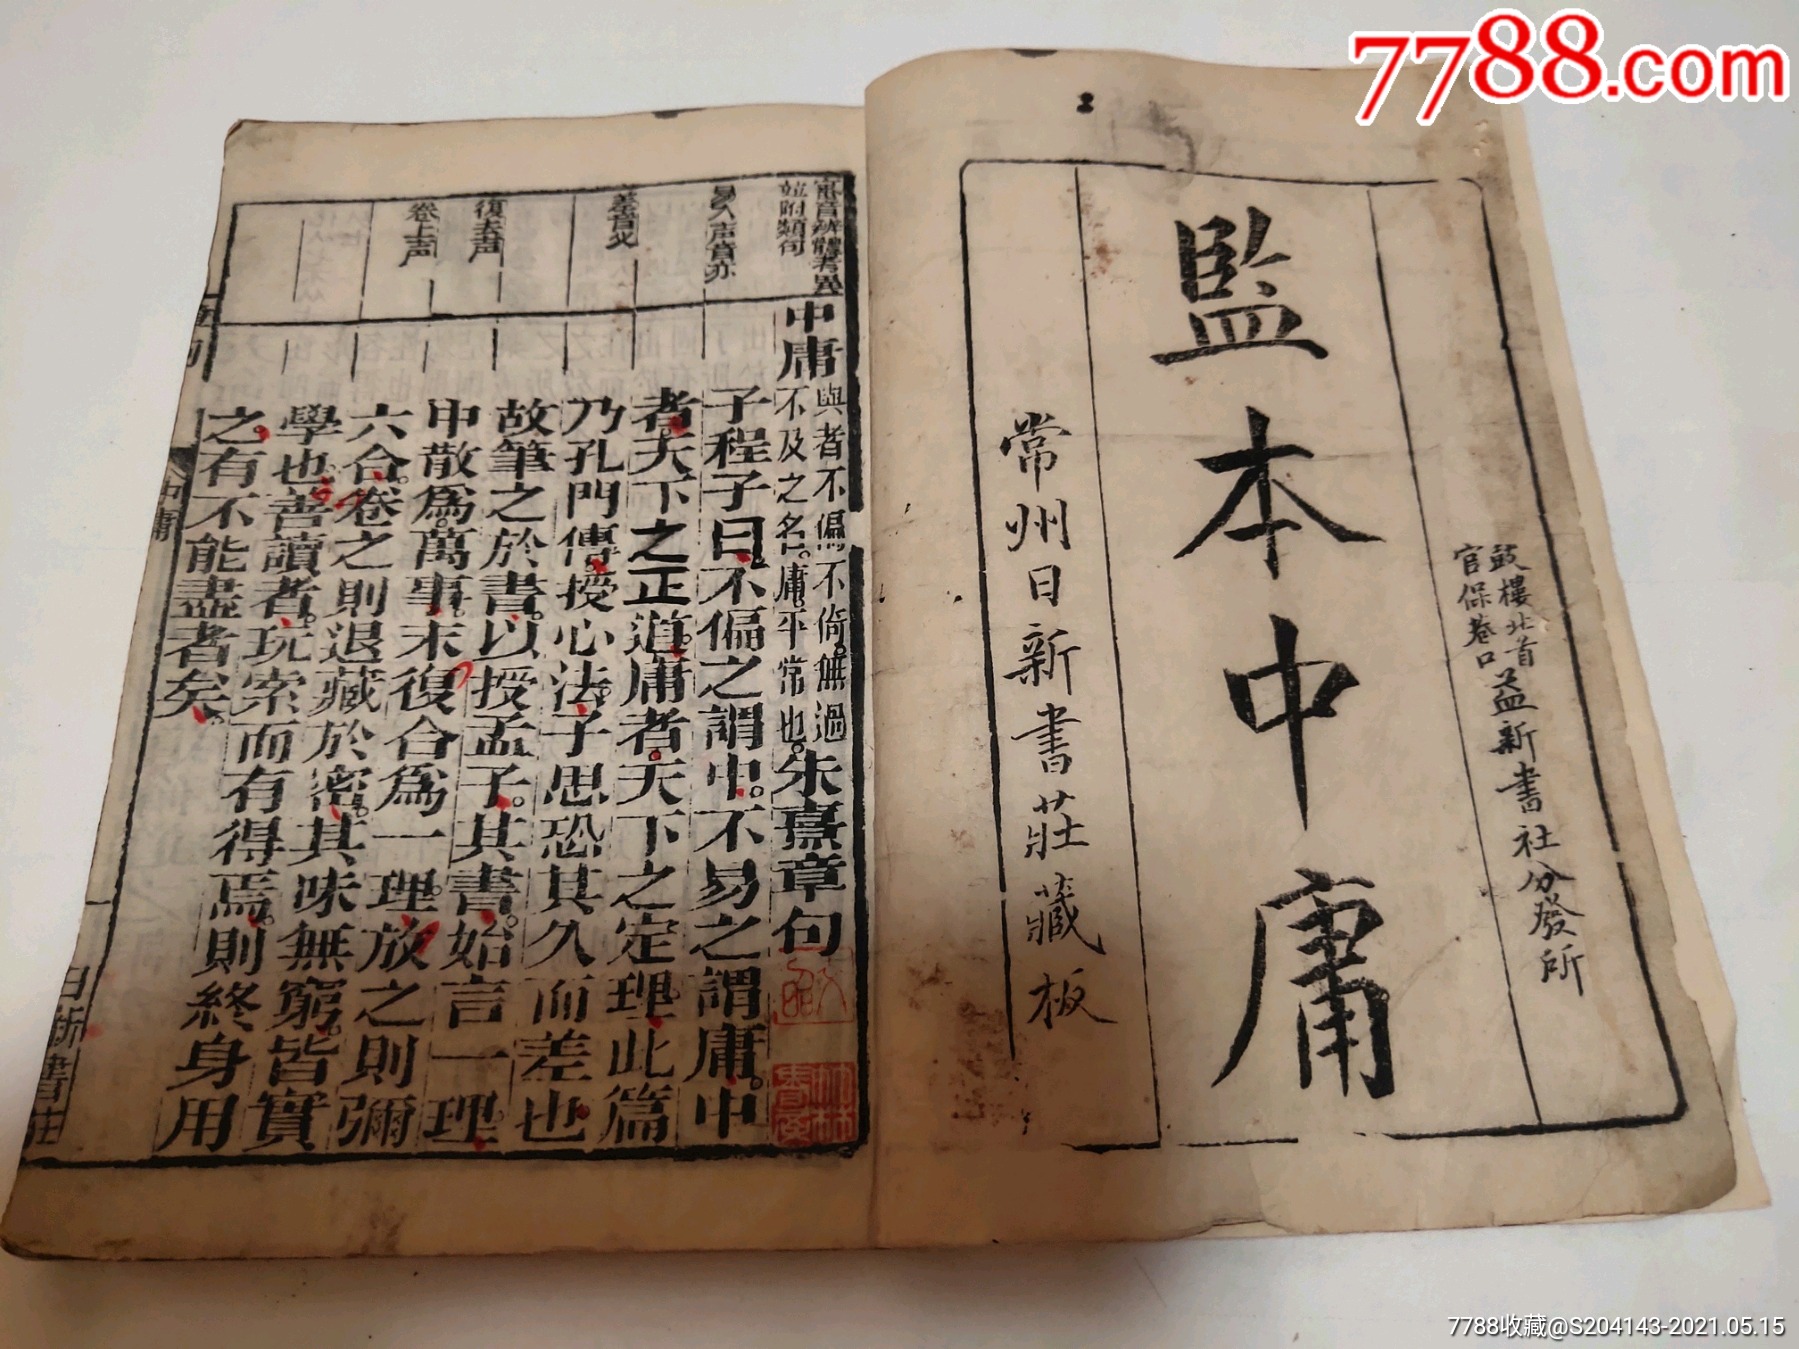 7788.com
鼓樓北首
官保巷口
益新書社分發所
監本中庸
常州日新書莊藏板
寔音辨體考異
並附類句
易入声音亦
差音火
復去声
卷上声
中庸
與者不偏不倚。無過
不及之名。庸。平常也。
朱熹章句
子程子曰。不偏之謂中。不易之謂庸。中
者。天下之正道。庸者。天下之定理。此篇
乃孔門傳授心法。子思恐其久而差也
故筆之於書。以授孟子。其書。始言一理。
中散爲。萬事。末復合爲一理。放之則彌
六合。卷之則退藏於密。其味無窮。皆實
學也。善讀者。玩索而有得焉。則終身用
之。有不能盡者矣。
中庸
日新書莊
7788收藏@S204143-2021.05.15